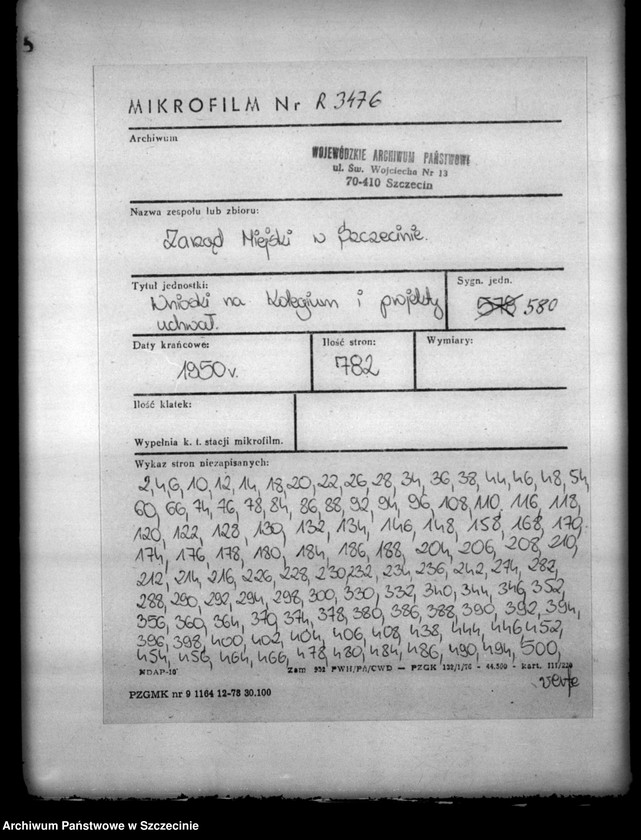 MIKROFILM Nr R 3476
Archiwum
WOJEWÓDZKIE ARCHIWUM PAŃSTWOWE
ul. Św. Wojciecha Nr 13
70-410 Szczecin
Nazwa zespołu lub zbioru:
Zarząd Miejski w Szczecinie.
Tytuł jednostki:
Sygn. jedn.
Wnioski na Kolegium i projekty
578 580
uchwał.
Daty krańcowe:
Ilość stron:
Wymiary:
1950 r.
782
Ilość klatek:
Wypełnia k. t. stacji mikrofilm.
Wykaz stron niezapisanych:
2, 4, 6, 10, 12, 14, 18, 20, 22, 26, 28, 34, 36, 38, 44, 46, 48, 54,
60, 66, 74, 76, 78, 84, 86, 88, 92, 94, 96, 108, 110, 116, 118,
120, 122, 128, 130, 132, 134, 146, 148, 158, 168, 170,
174, 176, 178, 180, 184, 186, 188, 204, 206, 208, 210,
212, 214, 216, 226, 228, 230, 232, 234, 236, 242, 274, 282,
288, 290, 292, 294, 298, 300, 330, 332, 340, 344, 346, 352,
356, 360, 364, 370, 374, 378, 380, 386, 388, 390, 392, 394,
396, 398, 400, 402, 404, 406, 408, 438, 444, 446, 452,
454, 456, 464, 466, 478, 480, 484, 486, 490, 494, 500,
NDAP-10
PZGK
44.500 - kart.
verte
PZGMK nr 9 1164 12-78 30.100
Archiwum Państwowe w Szczecinie